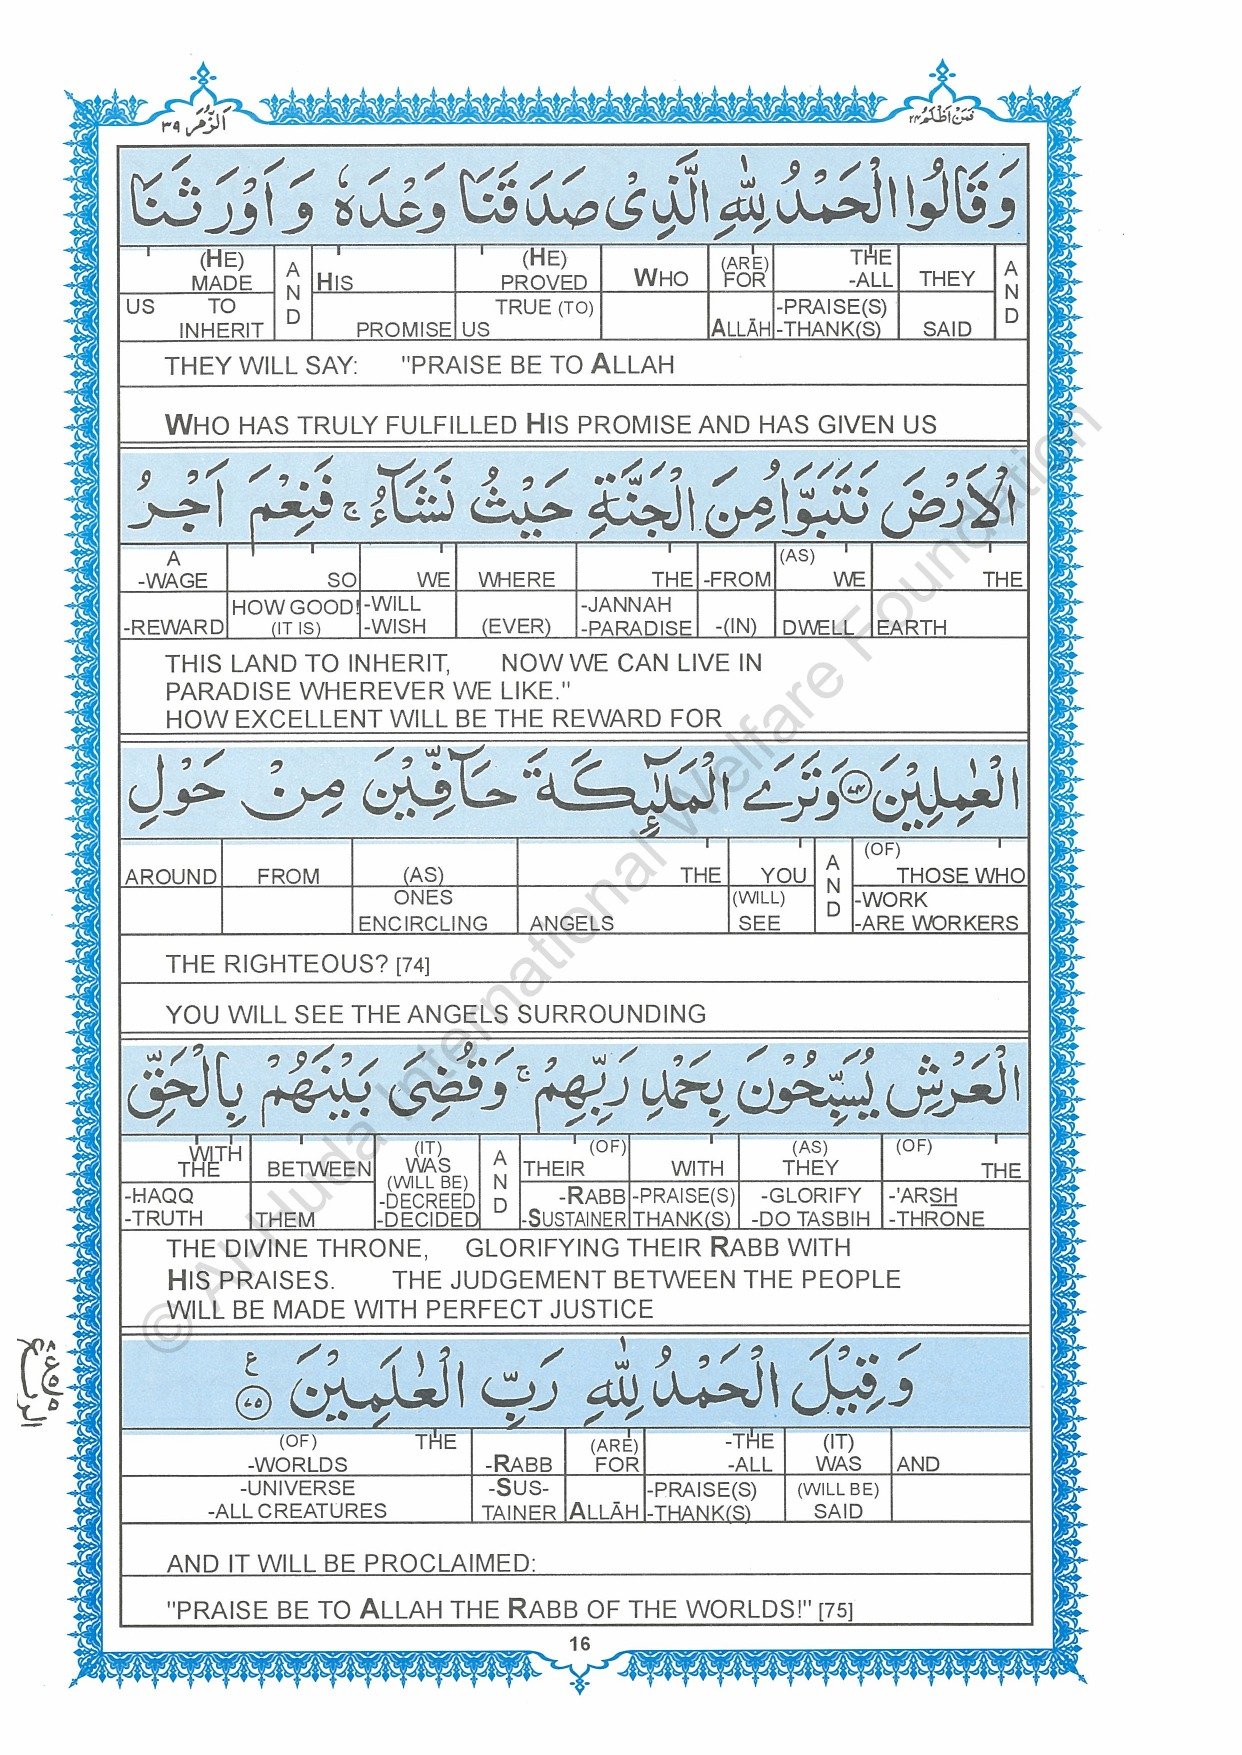 اَلزُّمَر ٣٩
فَمَنْ اَظْلَمُ ٢٤
وَقَالُوا الْحَمْدُ لِلّٰهِ الَّذِىْ صَدَقَنَا وَعْدَهٗ وَاَوْرَثَنَا
(HE) AND HIS (HE) WHO (ARE) THE THEY AND
MADE PROVED FOR -ALL
US TO TRUE (TO) -PRAISE(S)
INHERIT PROMISE US ALLĀH -THANK(S) SAID
THEY WILL SAY: "PRAISE BE TO ALLAH
WHO HAS TRULY FULFILLED HIS PROMISE AND HAS GIVEN US
الْاَرْضَ نَتَبَوَّاُ مِنَ الْجَنَّةِ حَيْثُ نَشَآءُ ۚ فَنِعْمَ اَجْرُ
A (AS)
-WAGE SO WE WHERE THE -FROM WE THE
HOW GOOD! -WILL -JANNAH
-REWARD (IT IS) -WISH (EVER) -PARADISE -(IN) DWELL EARTH
THIS LAND TO INHERIT, NOW WE CAN LIVE IN
PARADISE WHEREVER WE LIKE."
HOW EXCELLENT WILL BE THE REWARD FOR
الْعٰمِلِيْنَ ٧٤ وَتَرَى الْمَلٰٓئِكَةَ حَآفِّيْنَ مِنْ حَوْلِ
AND (OF)
AROUND FROM (AS) THE YOU THOSE WHO
ONES (WILL) -WORK
ENCIRCLING ANGELS SEE -ARE WORKERS
THE RIGHTEOUS? [74]
YOU WILL SEE THE ANGELS SURROUNDING
الْعَرْشِ يُسَبِّحُوْنَ بِحَمْدِ رَبِّهِمْ ۚ وَقُضِىَ بَيْنَهُمْ بِالْحَقِّ
WITH (IT) AND (OF) (AS) (OF)
THE BETWEEN WAS THEIR WITH THEY THE
(WILL BE)
-HAQQ -DECREED -RABB -PRAISE(S) -GLORIFY -'ARSH
-TRUTH THEM -DECIDED -SUSTAINER THANK(S) -DO TASBIH -THRONE
THE DIVINE THRONE, GLORIFYING THEIR RABB WITH
HIS PRAISES. THE JUDGEMENT BETWEEN THE PEOPLE
WILL BE MADE WITH PERFECT JUSTICE
وَقِيْلَ الْحَمْدُ لِلّٰهِ رَبِّ الْعٰلَمِيْنَ ٧٥ ع
(OF) THE (ARE) -THE (IT)
-WORLDS -RABB FOR -ALL WAS AND
-UNIVERSE -SUS- -PRAISE(S) (WILL BE)
-ALL CREATURES TAINER ALLĀH -THANK(S) SAID
AND IT WILL BE PROCLAIMED:
"PRAISE BE TO ALLAH THE RABB OF THE WORLDS!" [75]
16
© Al Huda International Welfare Foundation